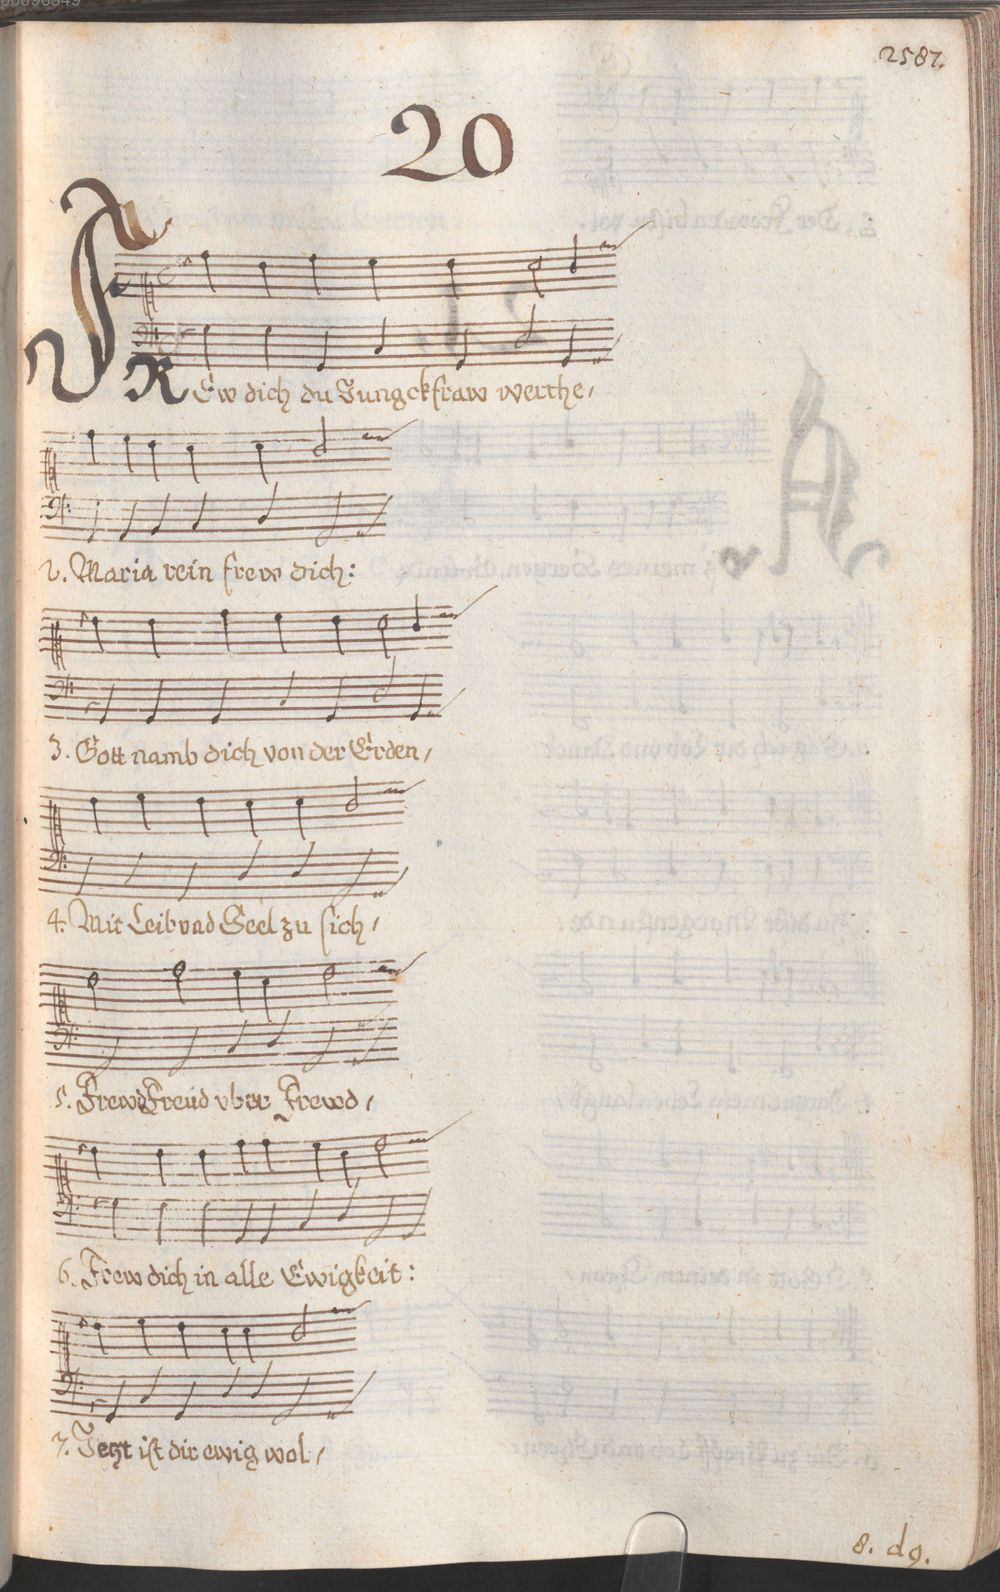 00090849
2587.
20
FREw dich du Jungckfraw werthe,
2. Maria rein frew dich:
3. Gott namb dich von der Erden,
4. Mit Leib vnd Seel zu sich,
5. Frewd Freud vber Frewd,
6. Frew dich in alle Ewigkeit:
7. Jetzt ist dir ewig wol,
8. d9.